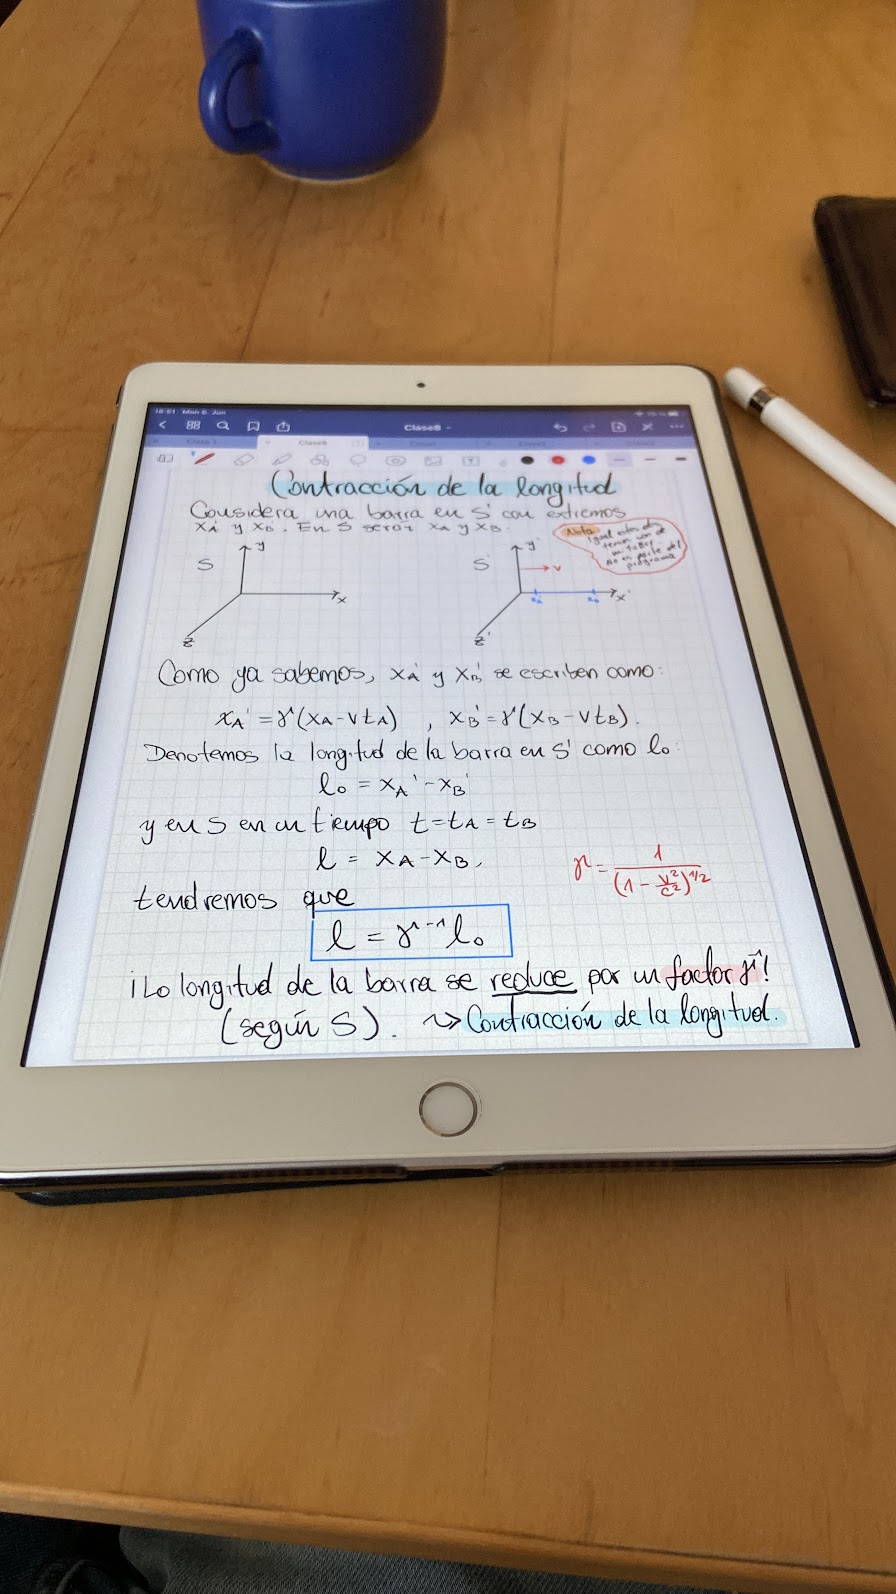 18:51 Mon 6. Jun
Clase8
Clase8
Contracción de la longitud
Considera una barra en S' con extremos
xA' y xB'. En S serán xA y xB.
Nota:
Igual estos dos
programa
S
y
x
z
S'
y'
v
xA'
xB'
x'
z'
Como ya sabemos, xA' y xB' se escriben como:
xA' = γ(xA - vtA) , xB' = γ(xB - vtB).
Denotemos la longitud de la barra en S' como l₀:
l₀ = xA' - xB'
y en S en un tiempo t = tA = tB
l = xA - xB,
γ = 1/(1 - v²/c²)^1/2
tendremos que
l = γ⁻¹ l₀
¡La longitud de la barra se reduce por un factor γ⁻¹!
(según S). ⤳ Contracción de la longitud.